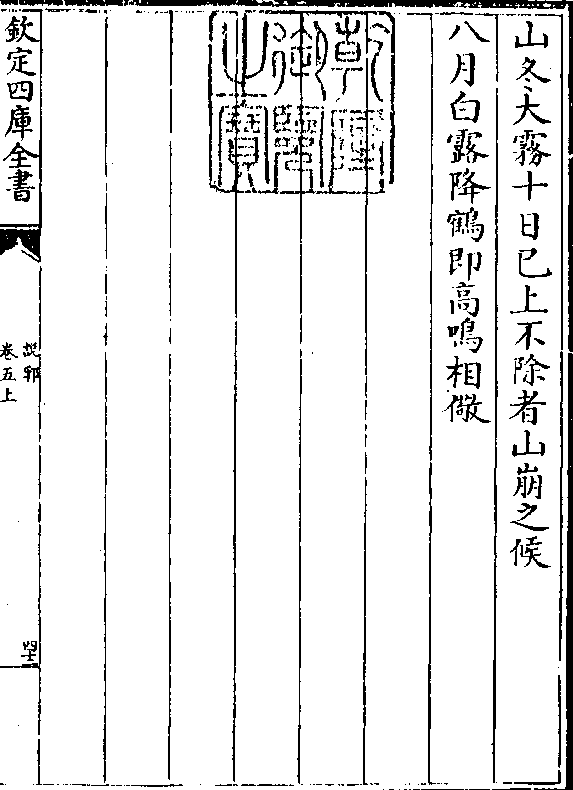 山冬大霧十日已上不除者山崩之候
八月白露降鶴即高鳴相儆
乾隆御覽之寶
欽定四庫全書
說郛
卷五上